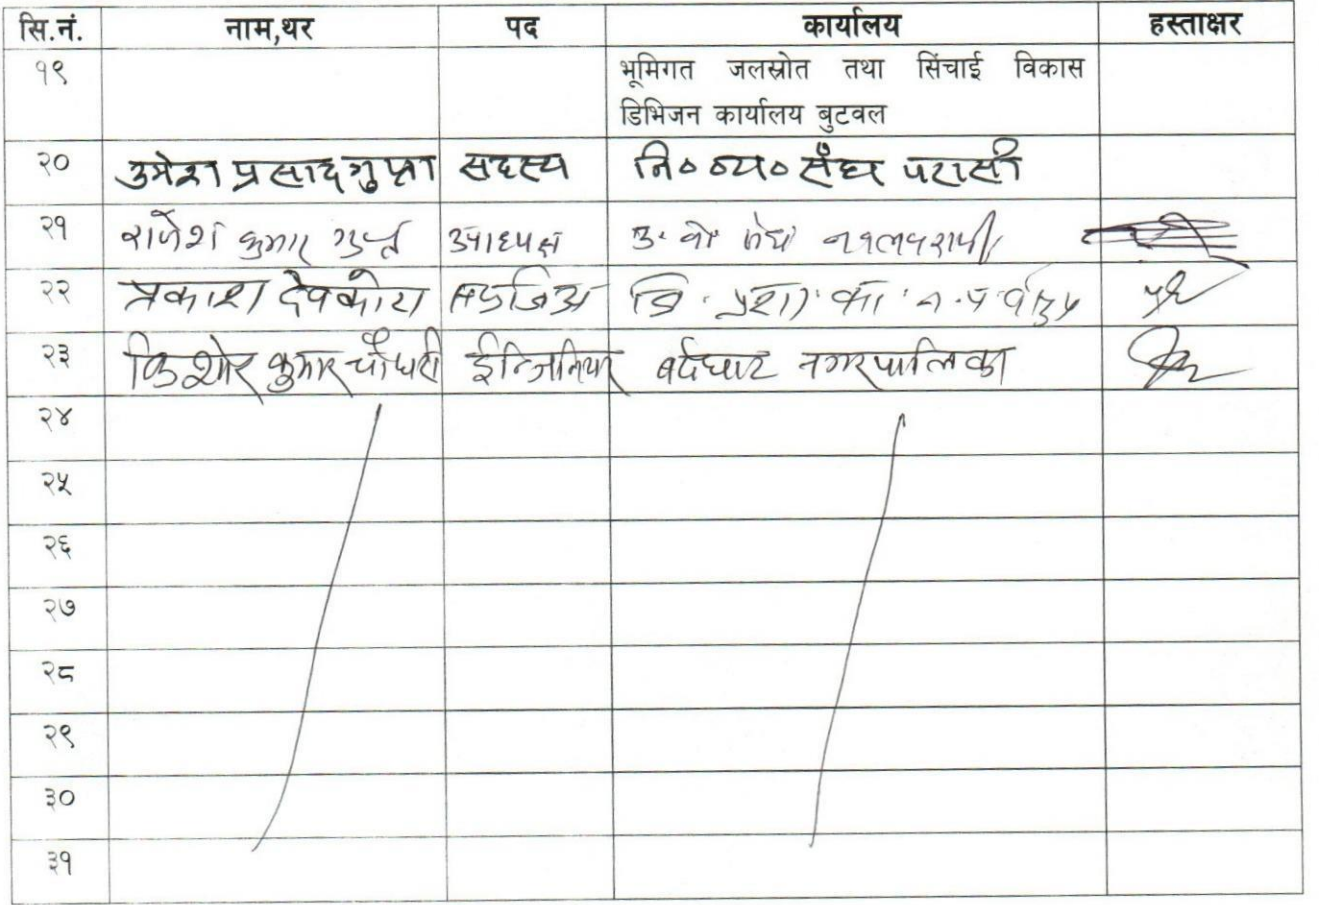 सि.नं. नाम,थर पद कार्यालय हस्ताक्षर
१९ भूमिगत जलस्रोत तथा सिंचाई विकास
डिभिजन कार्यालय बुटवल
२० उमेश प्रसाद गुप्ता सदस्य नि० व्य० सँघ परासी
२१ राजेश कुमार
२२ प्रकाश देवकोटा
२३ किशोर कुमार चौधरी ईन्जिनियर बर्दघाट नगरपालिका
२४
२५
२६
२७
२८
२९
३०
३१